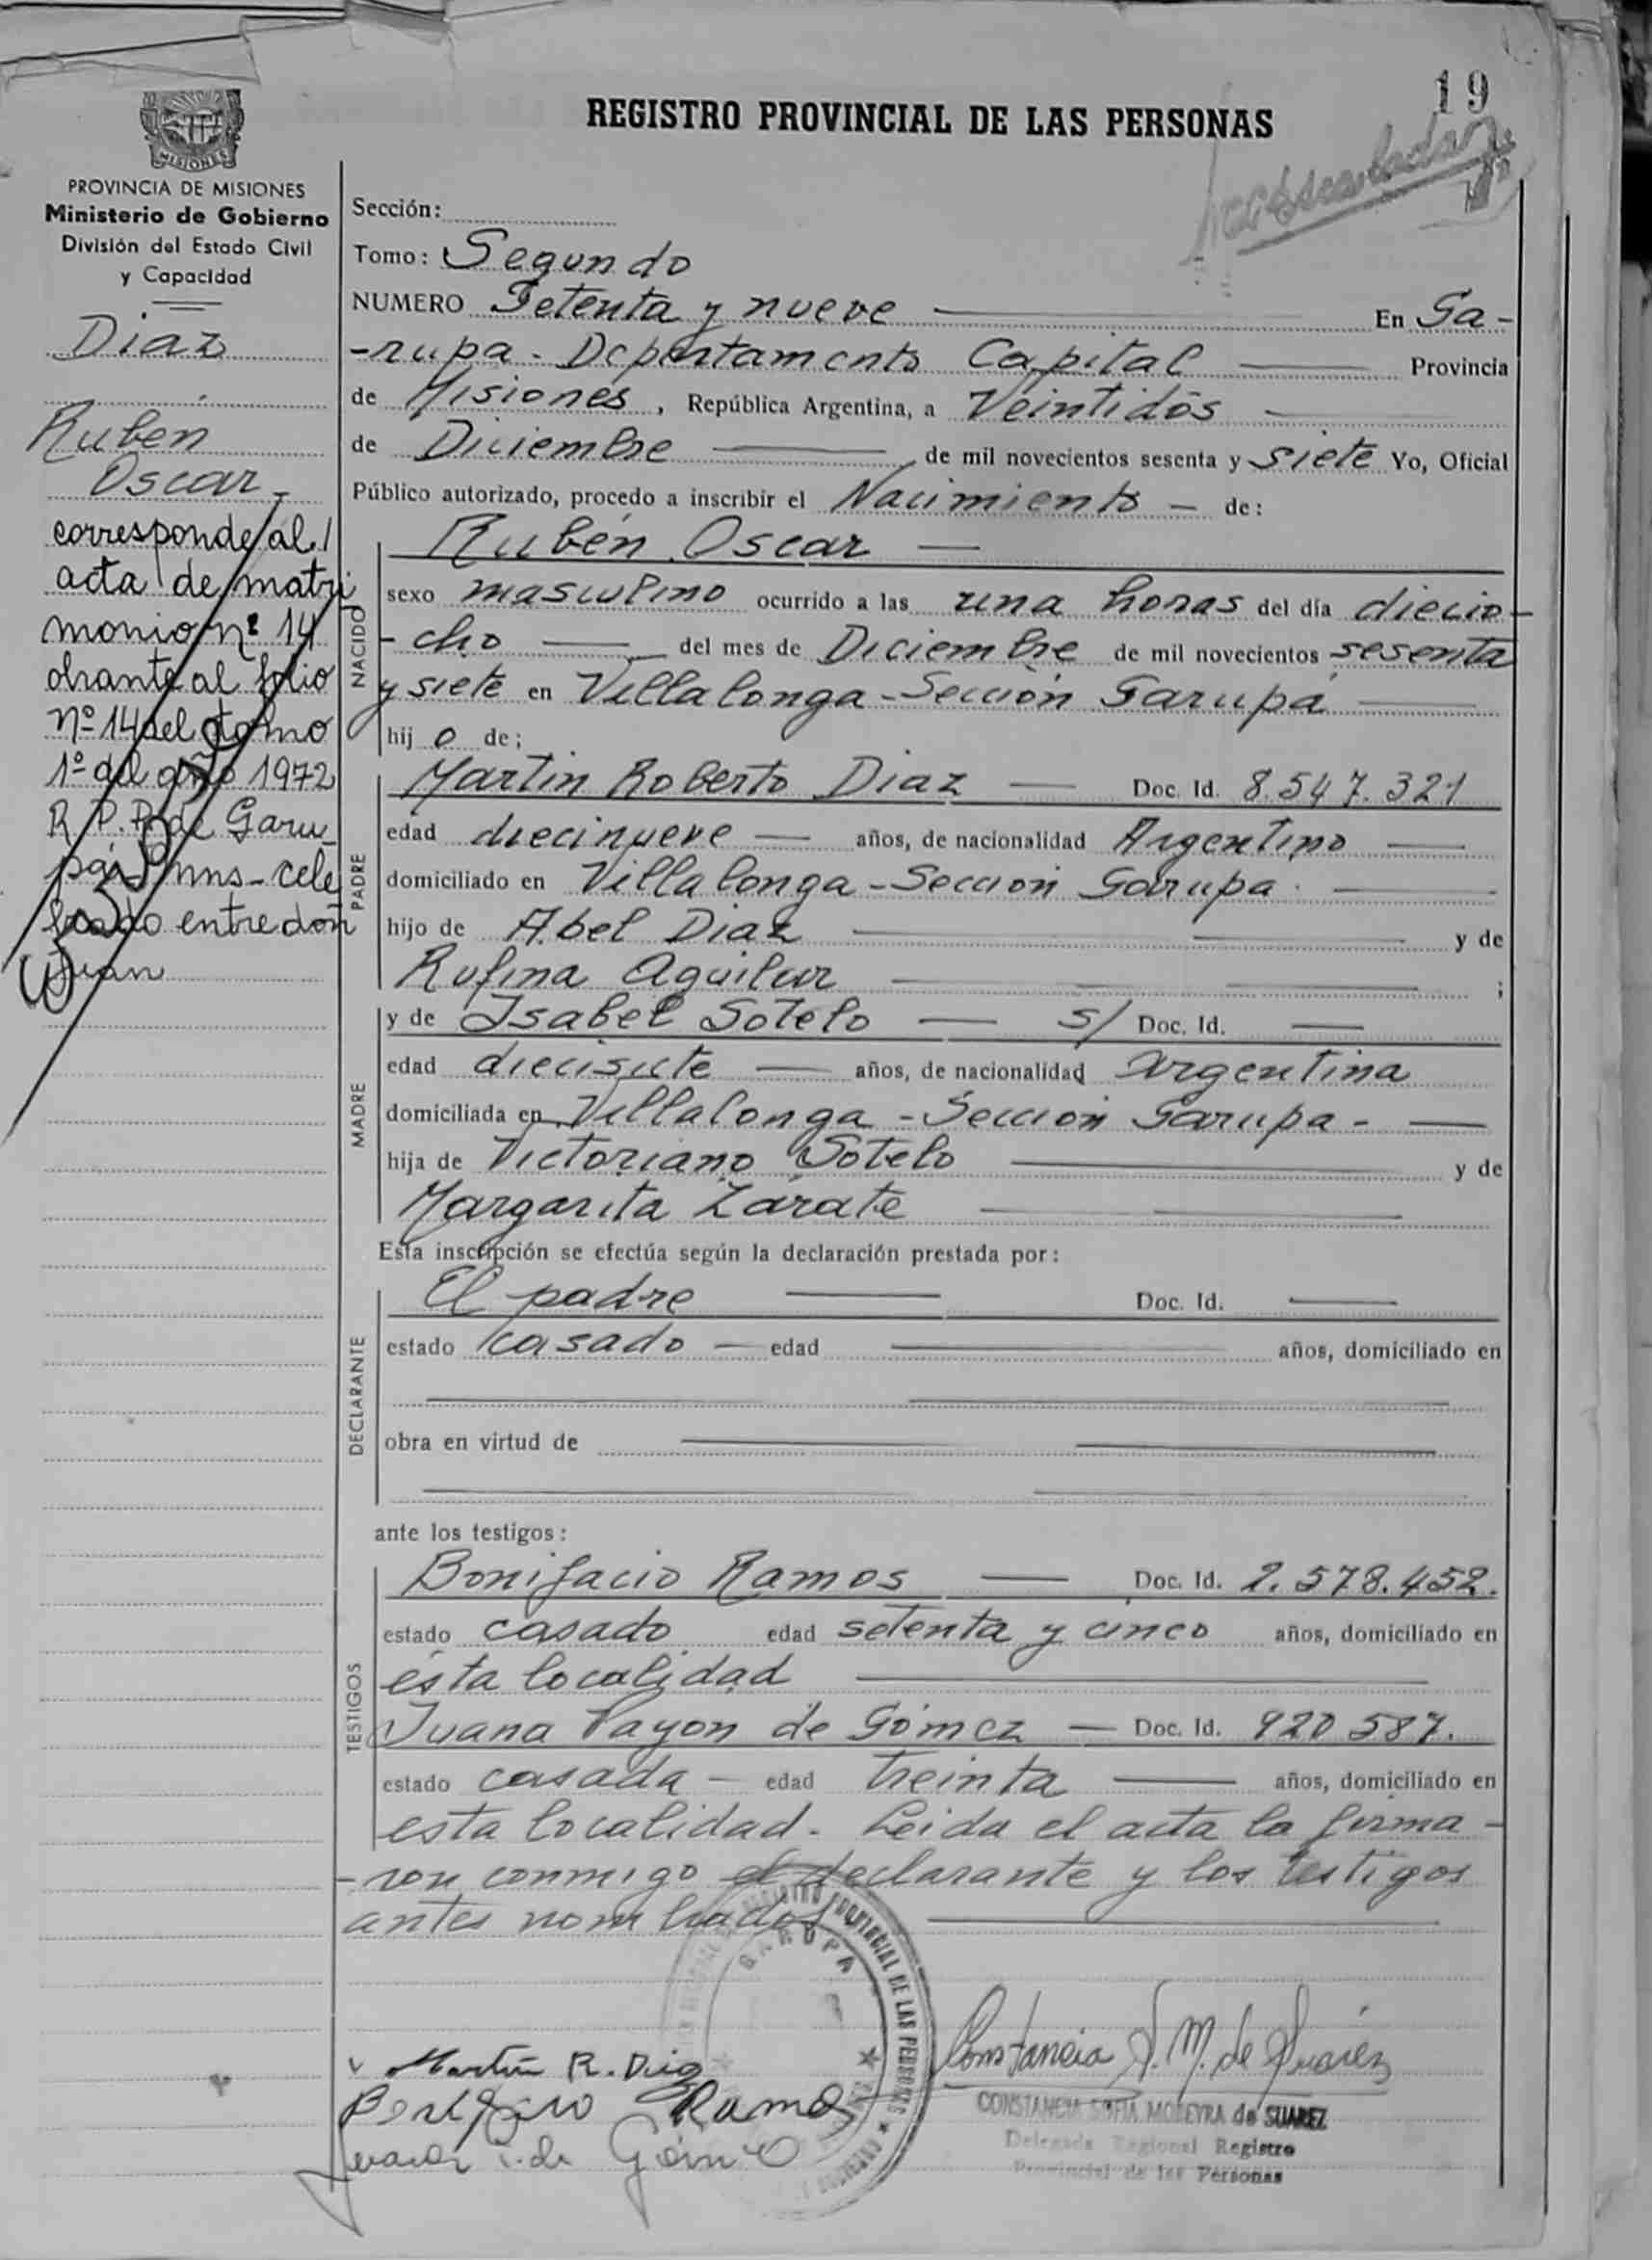 19
REGISTRO PROVINCIAL DE LAS PERSONAS
MISIONES
PROVINCIA DE MISIONES
Ministerio de Gobierno
División del Estado Civil
y Capacidad
Diaz
Rubén
Oscar-
corresponde al
acta de matri
monio nº 14
obrante al folio
Nº 14 del tomo
1º del año 1972
R.P.P. de Garu_
pá mns-cele
brado entre don
Juan
Sección:
Tomo: Segundo
NUMERO Setenta y nueve En Ga-
-rupa - Departamento Capital Provincia
de Misiones, República Argentina, a Veintidós
de Diciembre de mil novecientos sesenta y siete Yo, Oficial
Público autorizado, procedo a inscribir el Nacimiento - de:
NACIDO
Rubén Oscar —
sexo masculino ocurrido a las una horas del día diecio-
-cho — del mes de Diciembre de mil novecientos sesenta
y siete en Villalonga - Sección Garupá —
hij o de;
PADRE
Martin Roberto Diaz — Doc. Id. 8.547.321
edad diecinueve — años, de nacionalidad Argentino —
domiciliado en Villalonga - Sección Garupa. —
hijo de Abel Diaz — y de
Rufina Aguilar — ;
MADRE
y de Isabel Sotelo — S/ Doc. Id. —
edad diecisiete — años, de nacionalidad Argentina
domiciliada en Villalonga - Sección Garupa - —
hija de Victoriano Sotelo — y de
Margarita Zárate —
Esta inscripción se efectúa según la declaración prestada por:
DECLARANTE
El padre — Doc. Id. —
estado casado — edad — años, domiciliado en
obra en virtud de —
ante los testigos:
TESTIGOS
Bonifacio Ramos — Doc. Id. 2.578.452.
estado casado edad setenta y cinco años, domiciliado en
ésta localidad —
Juana Payon de Gómez — Doc. Id. 920.587.
estado casada — edad treinta — años, domiciliado en
esta localidad. Leida el acta la firma-
-ron conmigo el declarante y los testigos
antes nombrados —
REGISTRO PROVINCIAL DE LAS PERSONAS
GARUPA
Martín R. Diaz
Ramos
de Gómez
Constancia S. M. de Suárez
CONSTANCIA SOFIA MOREYRA de SUAREZ
Delegada Regional Registro
Provincial de las Personas